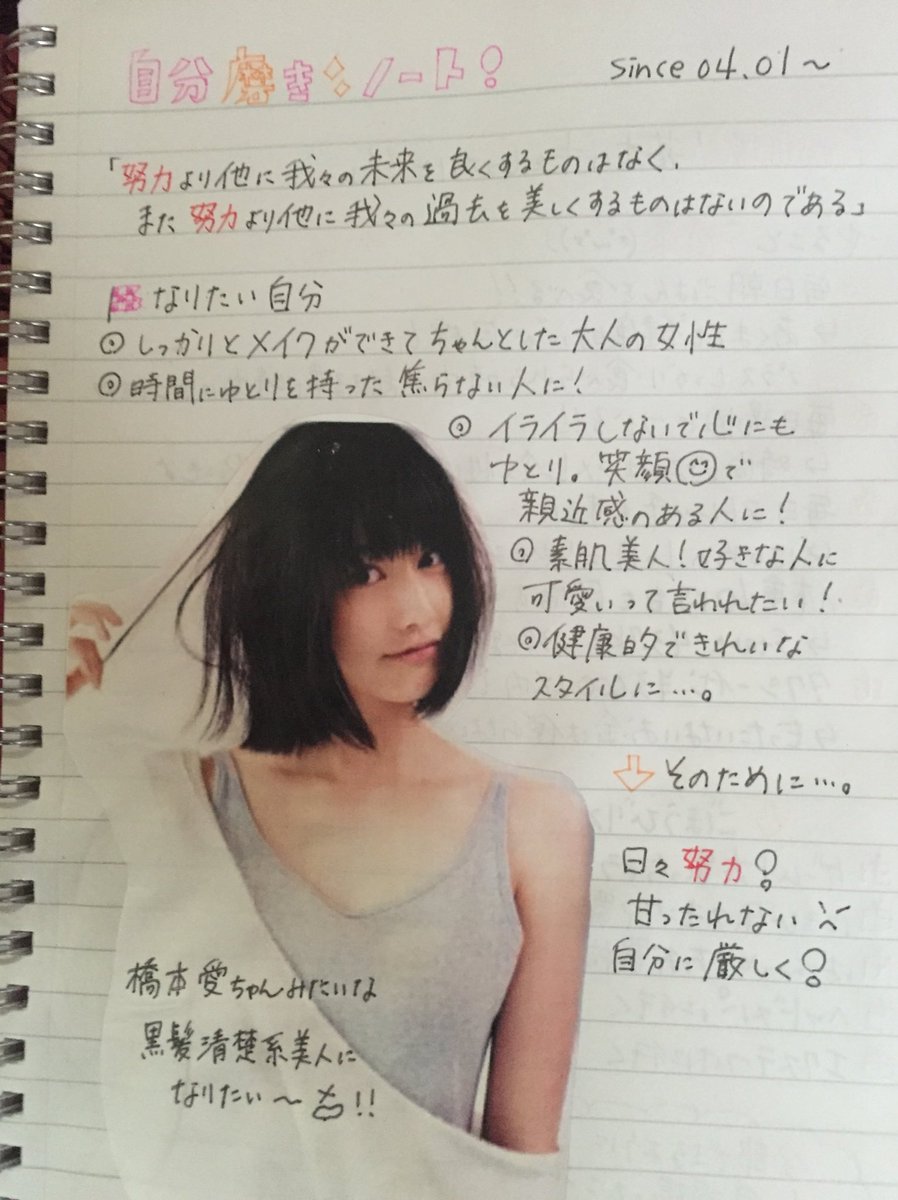 自分磨きノート!
since 04.01～
「努力より他に我々の未来を良くするものはなく、
また努力より他に我々の過去を美しくするものはないのである」
なりたい自分
しっかりとメイクができてちゃんとした大人の女性
時間にゆとりを持った焦らない人に!
イライラしないで心にも
ゆとり。笑顔で
親近感のある人に!
素肌美人!好きな人に
可愛いって言われたい!
健康的できれいな
スタイルに…。
そのために…。
日々努力!
甘ったれない
自分に厳しく!
橋本愛ちゃんみたいな
黒髪清楚系美人に
なりたい～!!